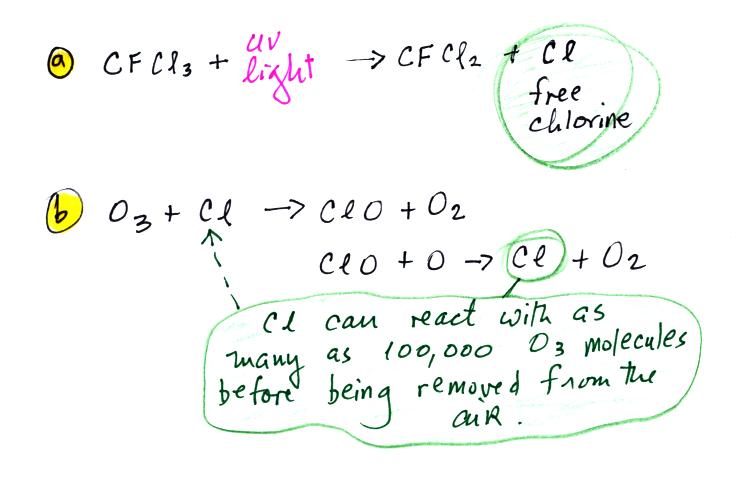 a CFCl3 + uv light → CFCl2 + Cl
free
chlorine
b O3 + Cl → ClO + O2
ClO + O → Cl + O2
Cl can react with as
many as 100,000 O3 molecules
before being removed from the
air.